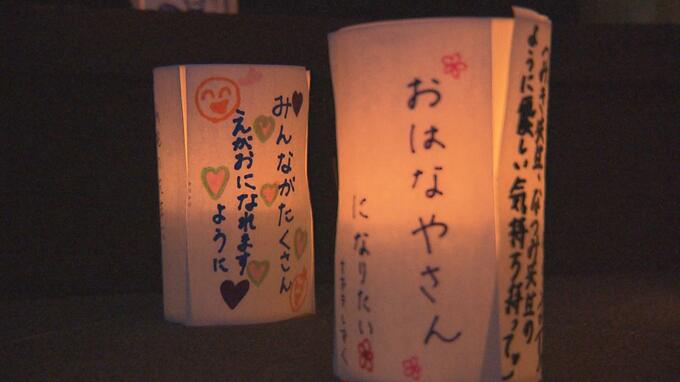 みんながたくさん
えがおになれます
ように
おはなやさん
になりたい
ように優しい気持ち持って